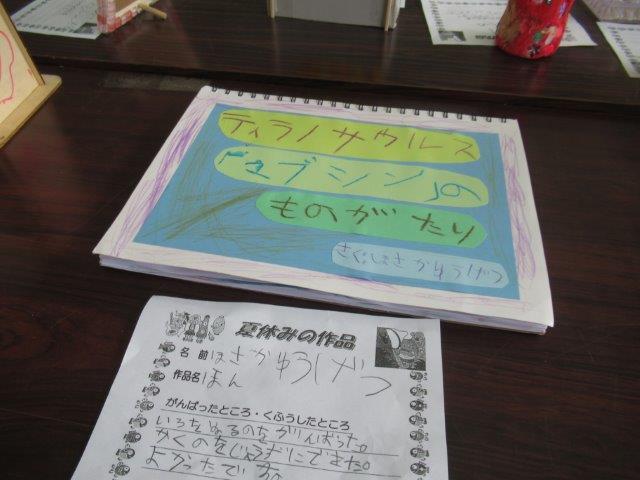 ティラノサウルス
「ユブシン」の
ものがたり
さく・はさかゆうげつ
夏休みの作品
名前 はさかゆうげつ
作品名 ほん
がんばったところ・くふうしたところ
いろをぬるのをがんばった。
かくのをじょうずにできた。
よかったです。